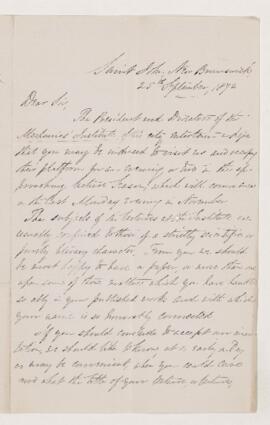 Saint John, New Brunswick
25th September, 1872
Dear Sir,
The President and Directors of the
Mechanics' Institute of this city entertain a hope
that you may be induced to visit us and occupy
their platform for an evening or two in the ap-
proaching lecture season, which will commence
on the last Monday evening in November
The subjects of the lectures at the Institute are
usually required to be of a strictly scientific or
purely literary character. From you we should
be most happy to have a paper, or more than one
upon some of those matters which you have treated
so ably in your published works and with which
your name is so honorably connected
If you should conclude to accept our invi-
tation, we should like to know at as early a day
as may be convenient, when you could come
and what the title of your lecture, or lectures,